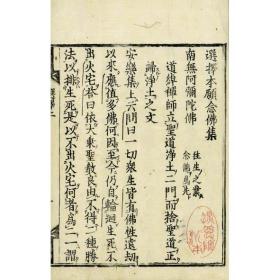 選擇本願念佛集
南無阿彌陀佛 往生之業 念佛為先
道綽禪師立聖道淨土二門而捨聖道正
歸淨土之文
安樂集上云問曰一切眾生皆有佛性遠劫
以來應值多佛何因至今仍自輪迴生死不
出火宅答曰依大乘聖教良由不得二種勝
法以排生死是以不出火宅何者為二一謂